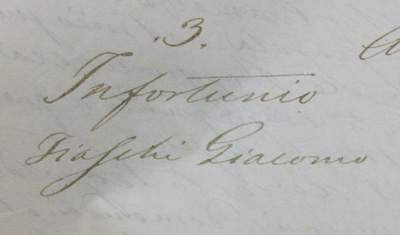 .3.
Infortunio
Fiaschi Giacomo